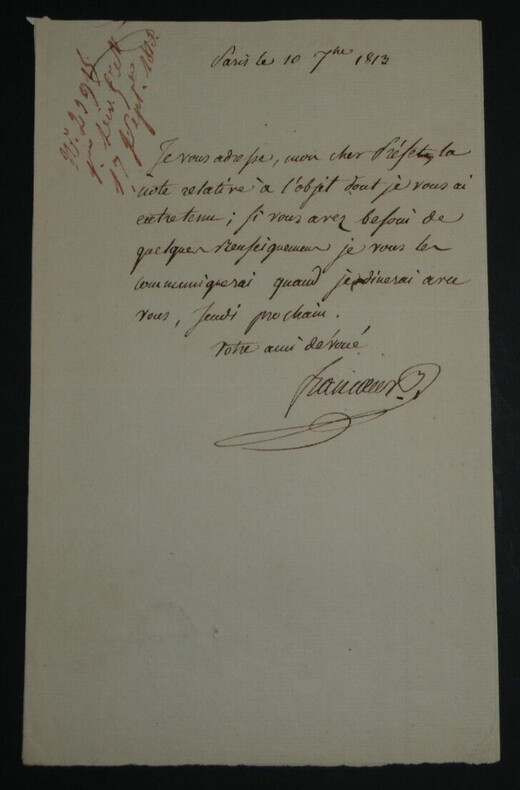 Paris le 10 7bre 1813
N.º 23915
17 Sept. 1813.
Je vous adresse, mon cher Préfet, la
note relative à l'objet dont je vous ai
entretenu ; si vous avez besoin de
quelques renseignemens je vous les
communiquerai quand je dinerai avec
vous, Jeudi prochain.
Votre ami dévoué
Francoeur